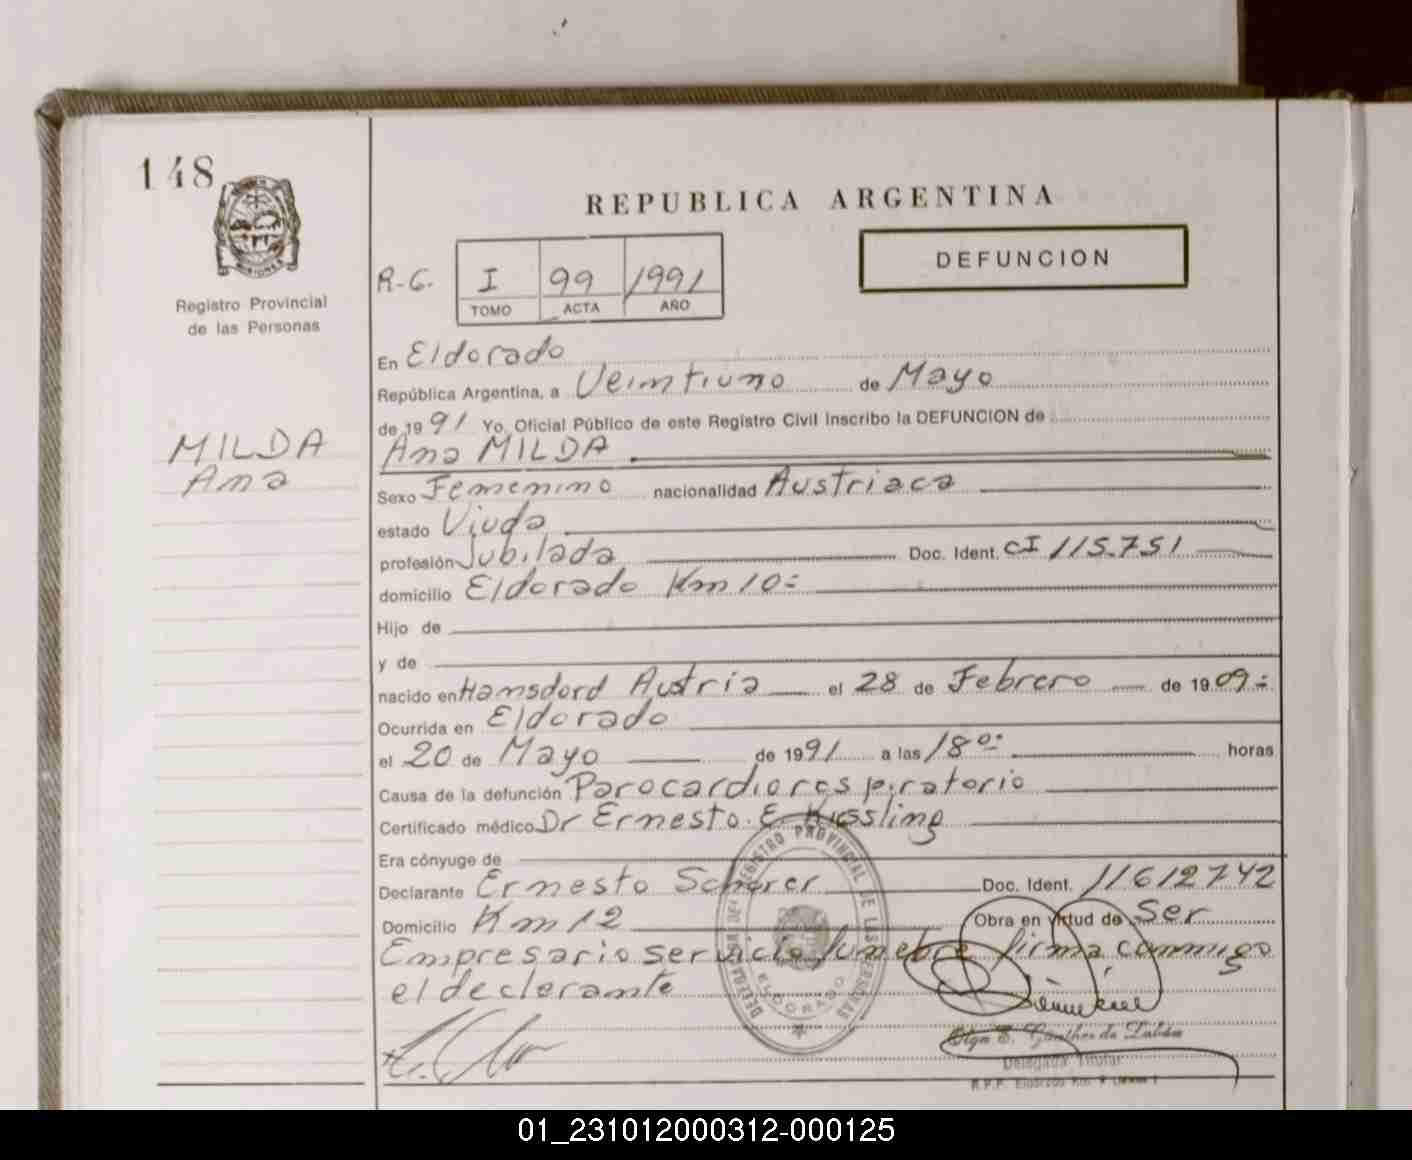 148
MISIONES
Registro Provincial
de las Personas
REPUBLICA ARGENTINA
DEFUNCION
R-G. I 99 1991
TOMO ACTA AÑO
En Eldorado
República Argentina, a Veintiuno de Mayo
de 1991 Yo, Oficial Público de este Registro Civil Inscribo la DEFUNCION de
MILDA
Ana
Ana MILDA.
Sexo Femenino nacionalidad Austriaca
estado Viuda
profesión Jubilada Doc. Ident. CI 115.751
domicilio Eldorado Km 10=
Hijo de
y de
nacido en Hamsdord Austria el 28 de Febrero de 1909=
Ocurrida en Eldorado
el 20 de Mayo de 1991 a las 18º= horas
Causa de la defunción Parocardiorespiratorio
Certificado médico Dr Ernesto. E. Kissling
Era cónyuge de
Declarante Ernesto Scherer Doc. Ident. 11612742
Domicilio Km 12 Obra en virtud de Ser
Empresario servicio funebre firma conmigo
el declarante
REGISTRO PROVINCIAL DE LAS PERSONAS
ELDORADO
Olga E. Günther de
Delegada Titular
R.P.P. Eldorado Km. 9
01_231012000312-000125